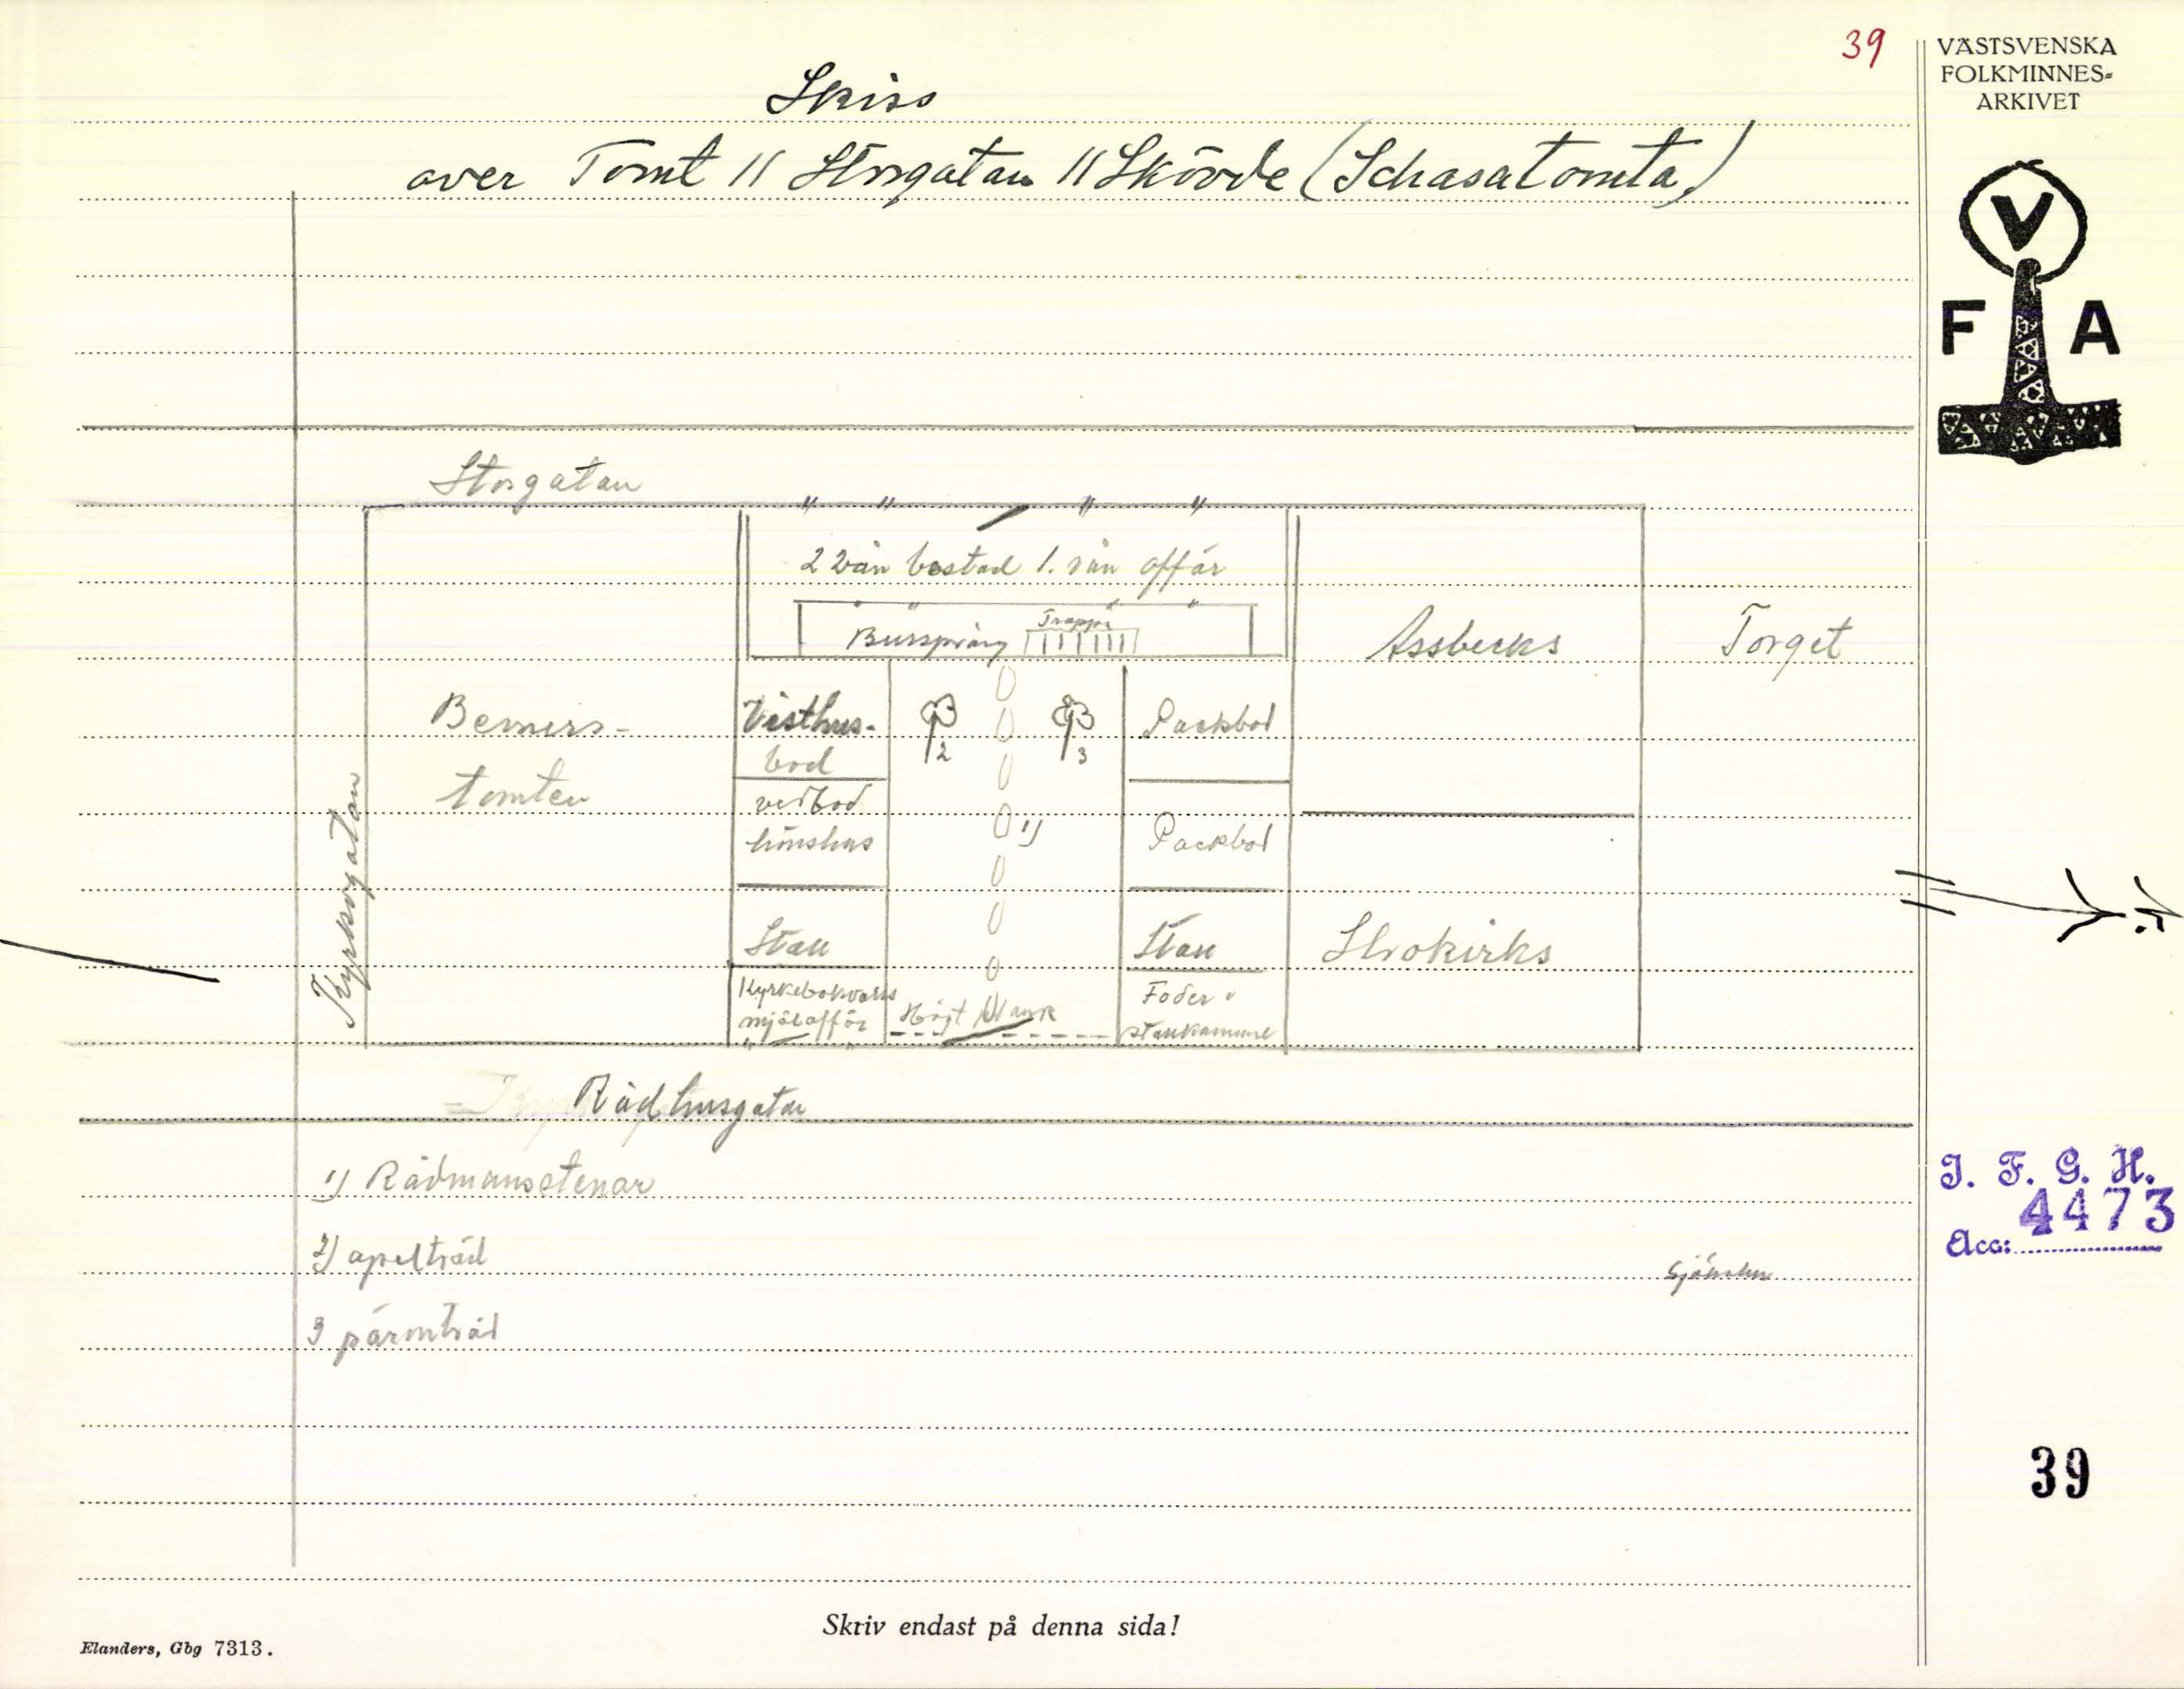 39
VÄSTSVENSKA
FOLKMINNES-
ARKIVET
Skiss
över Tomt 11 Storgatan 11 Skövde (Schasatomta)
V
F A
Storgatan
2 vån bostad 1. vån affär
Trappa
Bursprång
Assbecks
Torget
Berners-
tomten
Visthus-
bod
2
3
Packbod
vedbod
hönshus
1)
Packbod
Kyrkogatan
Stall
Stall
Strokirks
Kyrkebokvarns
mjölaffär
Högt Plank
Foder o
stallkammare
Rådhusgatan
1) Rådmansstenar
2) apelträd
3 päronträd
I. F. G. H.
4473
Acc:
39
Skriv endast på denna sida!
Elanders, Gbg 7313.